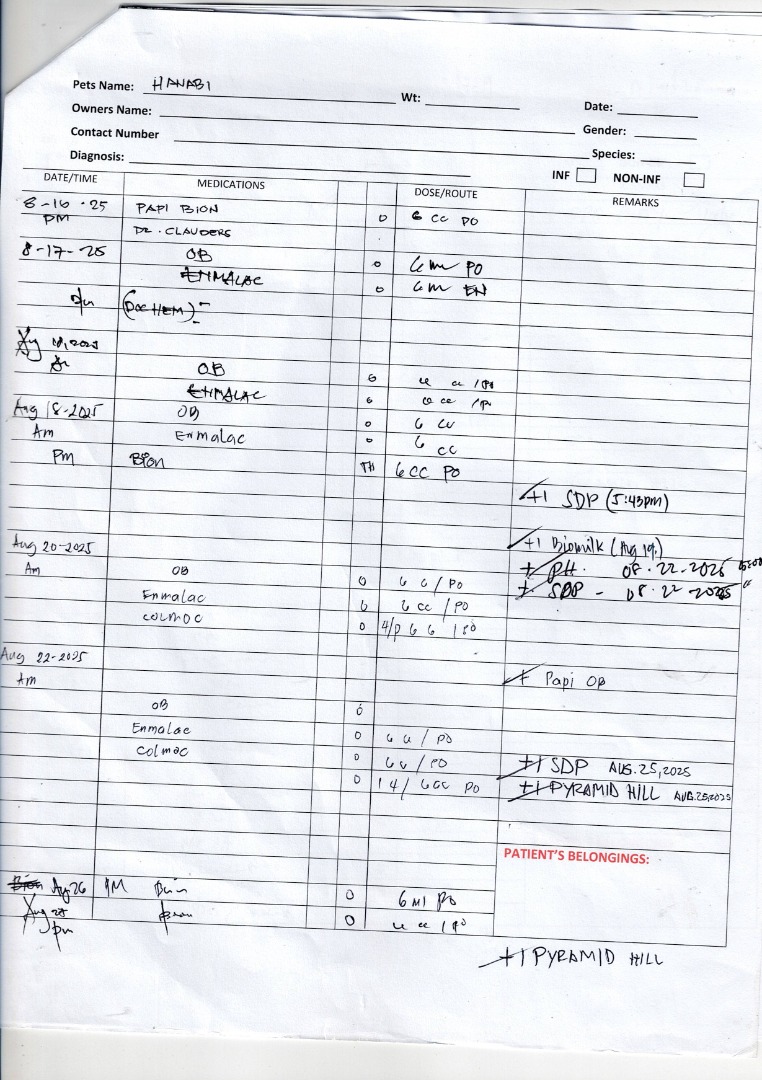 Pets Name: HANABI Wt: Date:
Owners Name:
Contact Number Gender:
Diagnosis: Species:
INF NON-INF
DATE/TIME MEDICATIONS DOSE/ROUTE REMARKS
8-16-25 PAPI BION 0 6 CC PO
PM
DR. CLAUDERS
8-17-25 OB 0 6 ml PO
ENMALAC 0 6 ml
(DOC HEM)
OB 6 cc / PO
ENMALAC cc / PO
Aug 18-2025 OB 0 6 cc
Am Enmalac 0 6 cc
Pm Bion TH 6 CC PO
+1 SDP (5:43pm)
Aug 20-2025 +1 Biomilk (Aug 19.)
Am OB 0 6 c / PO + P.H. 08-22-2025
Enmalac 6 cc / PO + SDP - 08-22-2025
COLMOC 0
Aug 22-2025
Am + Papi OB
OB 0
Enmalac 0 6 c / PO
Colmoc 0 6 c / PO +1 SDP AUG. 25, 2025
0 14/ 6cc PO +1 PYRAMID HILL AUG. 25, 2025
PATIENT'S BELONGINGS:
Aug 26 Bion 0 6 ml PO
Bion 0 cc / PO
+1 PYRAMID HILL